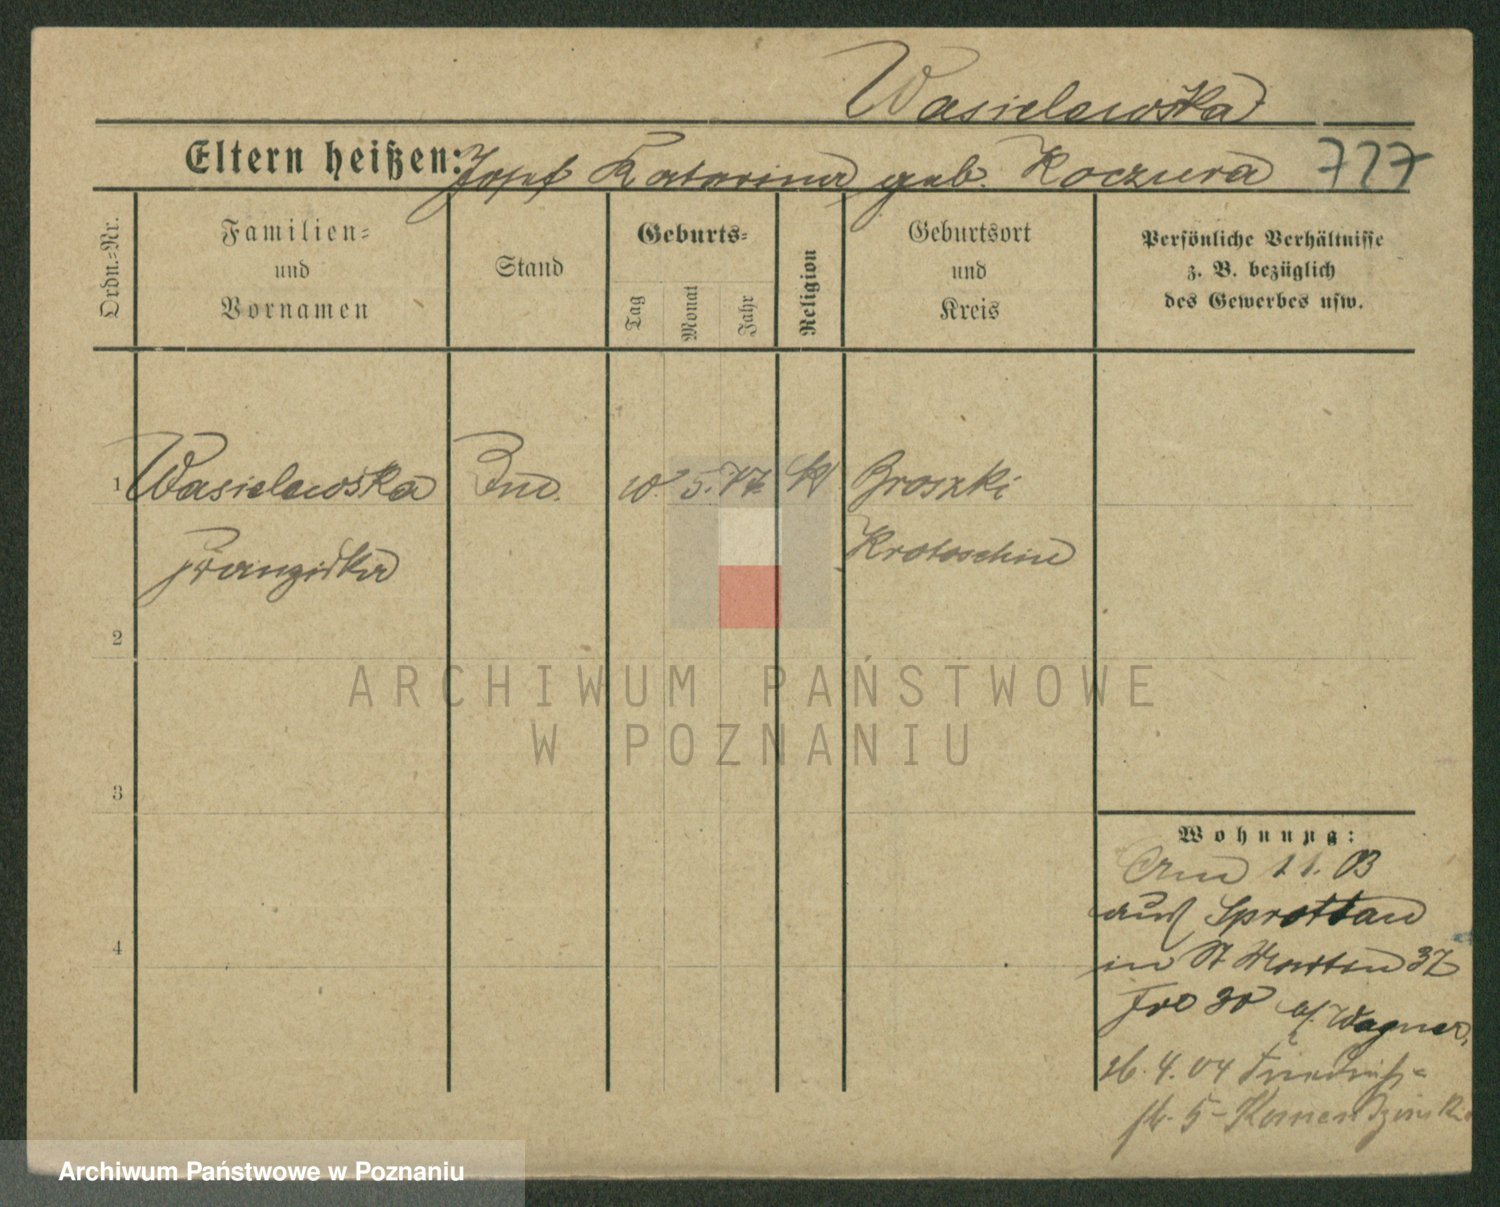 Wasielewska
Eltern heißen: Josef Katarina geb. Koczura 727
Ordn.=Nr.
Familien=
und
Vornamen
Stand
Geburts=
Tag
Monat
Jahr
Religion
Geburtsort
und
Kreis
Persönliche Verhältnisse
z. B. bezüglich
des Gewerbes usw.
1 Wasielewska 5. 77 K Broszki
Franziska Krotoschin
2
3
4
Wohnung:
1.1.03
aus Sprottau
in St Martin 37
b/. Wagner
26.4.04 Friedrich=
str. 5
ARCHIWUM PAŃSTWOWE
W POZNANIU
Archiwum Państwowe w Poznaniu